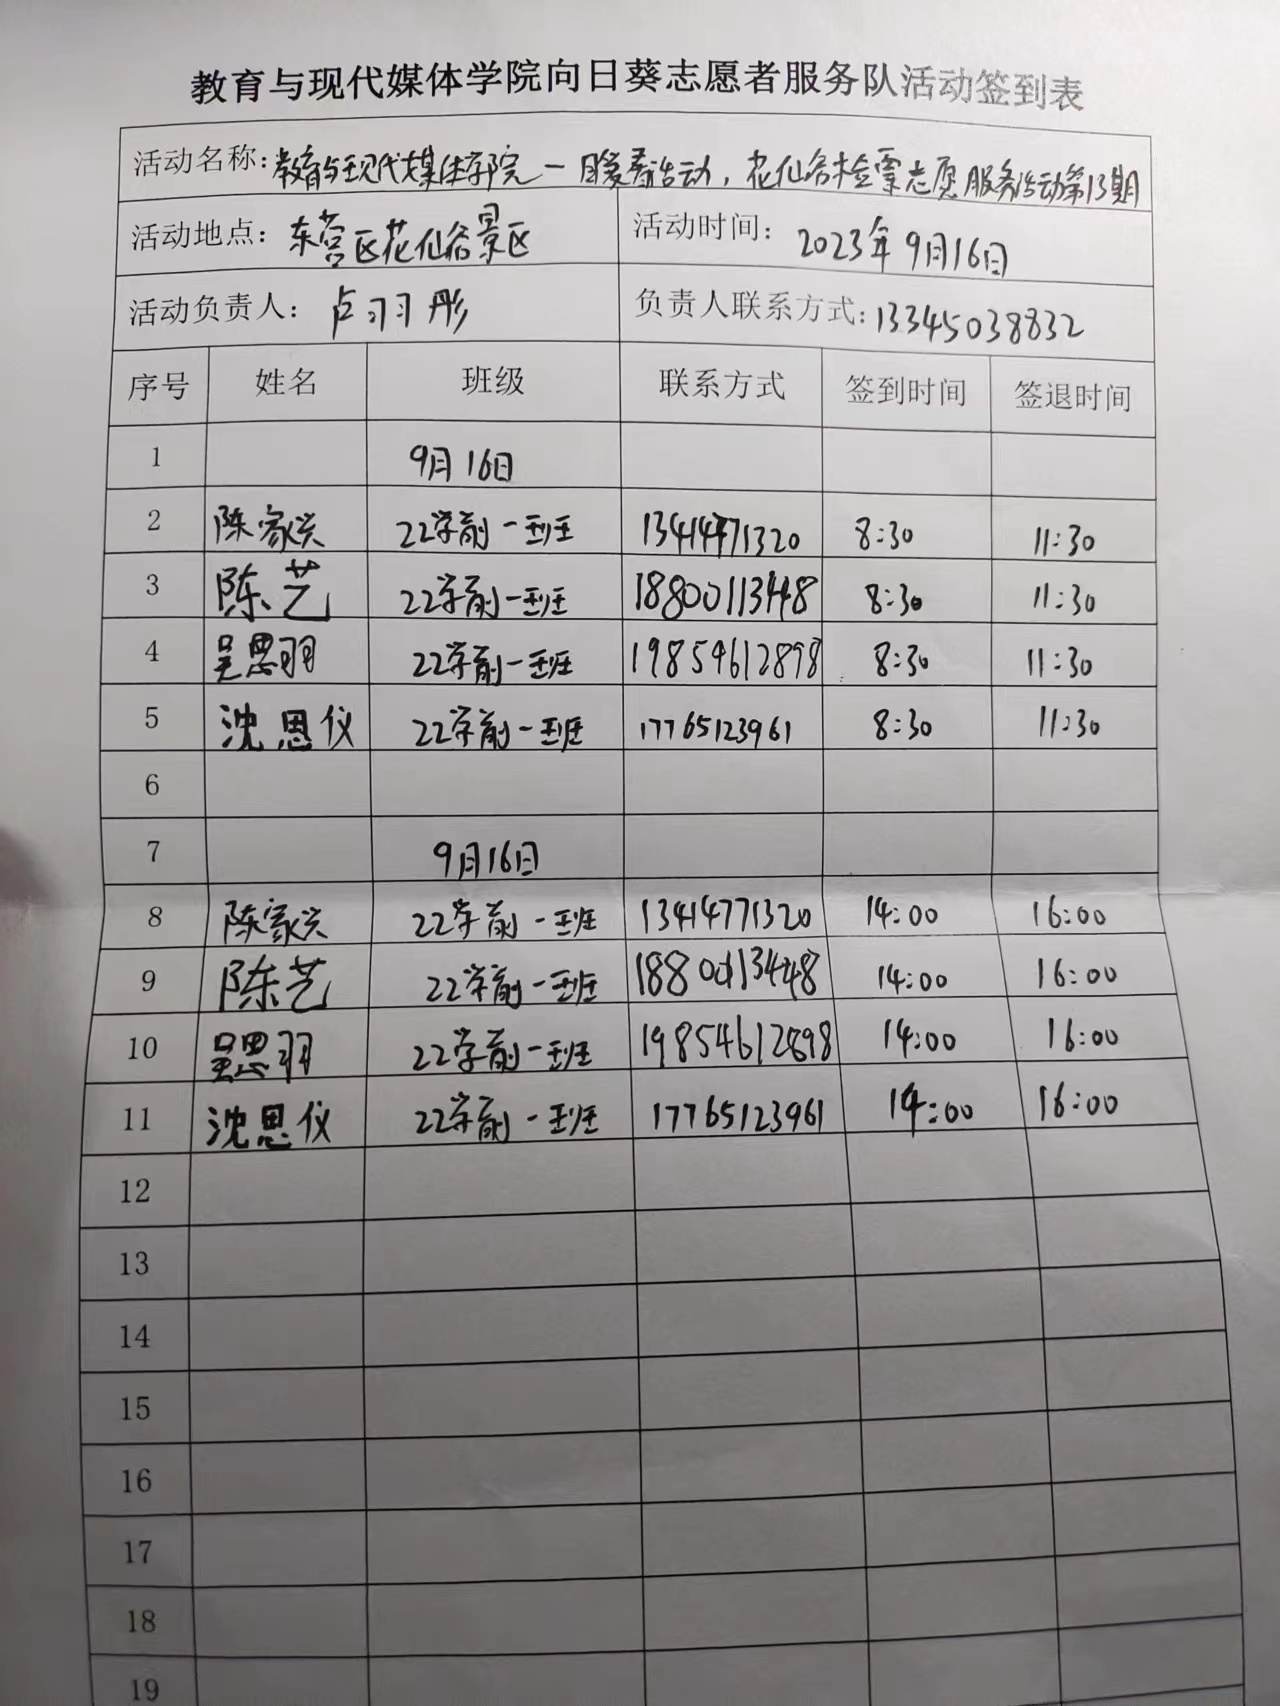 教育与现代媒体学院向日葵志愿者服务队活动签到表
活动名称:教育与现代媒体学院一月爱春活动,花仙谷检票志愿服务活动第13期
活动地点:东营区花仙谷景区 活动时间:2023年9月16日
活动负责人:卢习习彤 负责人联系方式:13345038832
序号 姓名 班级 联系方式 签到时间 签退时间
1 9月16日
2 陈家兴 22学前一班 13414771320 8:30 11:30
3 陈艺 22学前一班 18800113448 8:30 11:30
4 吴思羽 22学前一班 19854612898 8:30 11:30
5 沈恩仪 22学前一班 17765123961 8:30 11:30
6
7 9月16日
8 陈家兴 22学前一班 13414771320 14:00 16:00
9 陈艺 22学前一班 18800113448 14:00 16:00
10 吴思羽 22学前一班 19854612898 14:00 16:00
11 沈恩仪 22学前一班 17765123961 14:00 16:00
12
13
14
15
16
17
18
19